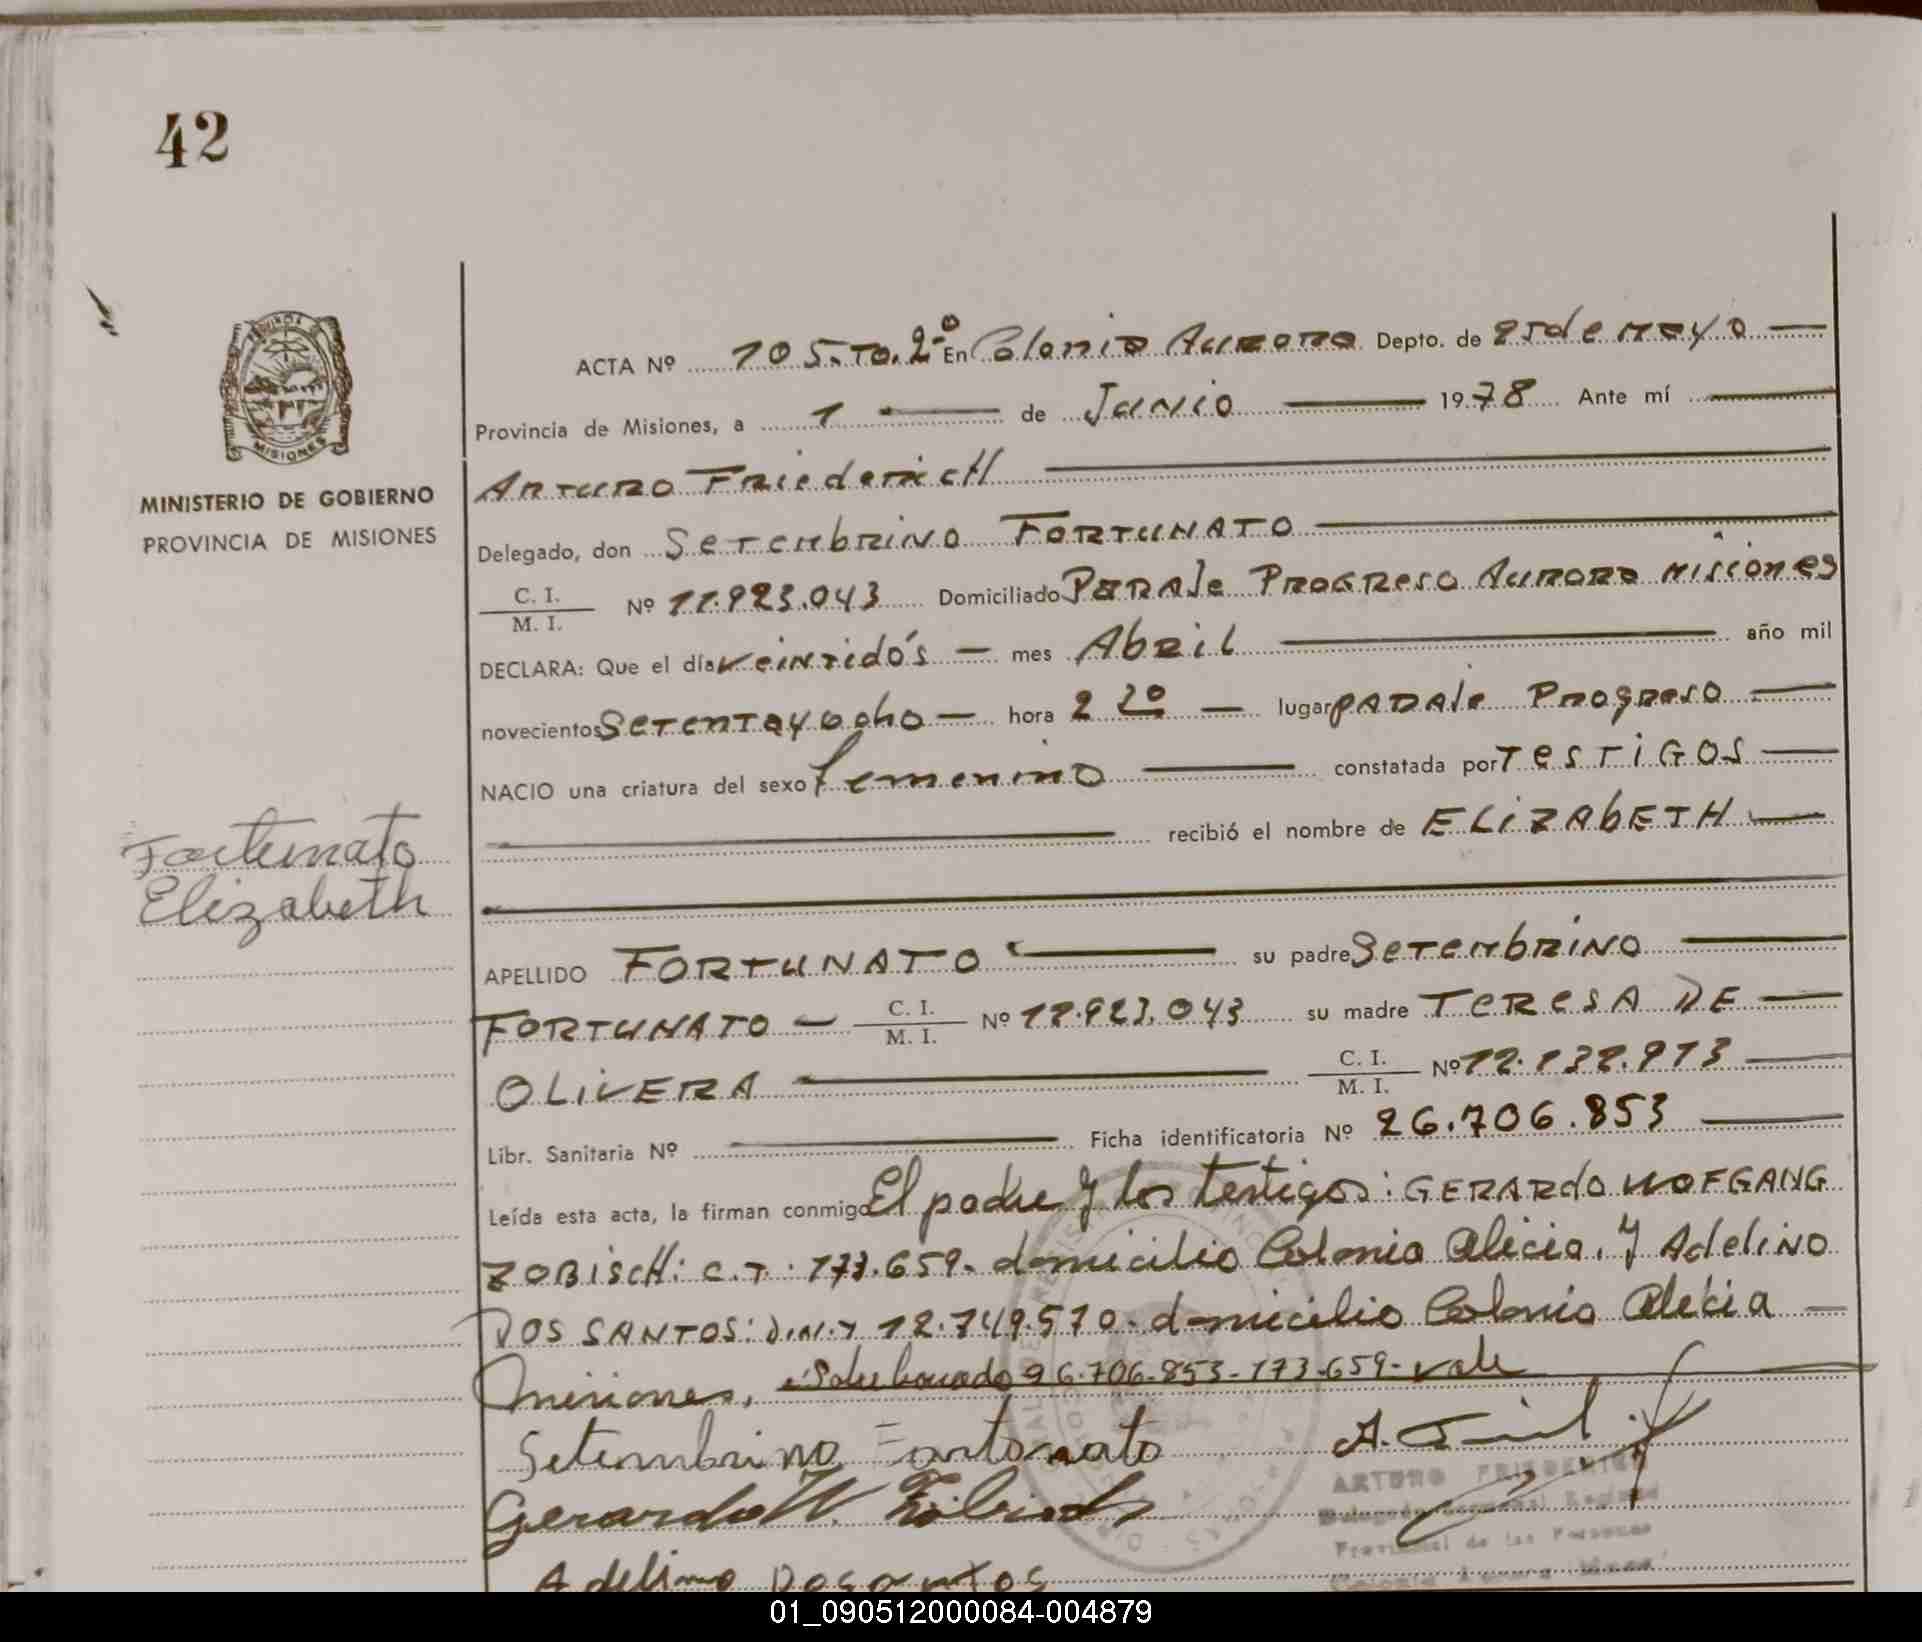 42
PROVINCIA DE
MISIONES
MINISTERIO DE GOBIERNO
PROVINCIA DE MISIONES
Fortunato
Elizabeth
ACTA Nº 105. To. 2º En Colonia Aurora Depto. de 25 de mayo
Provincia de Misiones, a 1 de Junio 1978 Ante mí
Arturo Friederich
Delegado, don Setembrino FORTUNATO
C. I. / M. I. Nº 11.923.043 Domiciliado PARAJe PROGReso AURORA Misiones
DECLARA: Que el día veintidós mes Abril año mil
novecientos Setenta y ocho hora 2 20 lugar pARAje Progreso
NACIO una criatura del sexo femenino constatada por TeSTiGOS
recibió el nombre de ELiZAbETH
APELLIDO FORTUNATO su padre Setembrino
FORTUNATO C. I. / M. I. Nº 11.923.043 su madre TeResA DE
OLiVERA C. I. / M. I. Nº 12.132.913
Libr. Sanitaria Nº Ficha identificatoria Nº 26.706.853
Leída esta acta, la firman conmigo El padre y los testigos: GERARdO WOFGANG
ZOBiscH: C.I. 173.659. domicilio Colonia Alicia. y AdeliNO
DOS SANTOS: D.N.I 12.749.570. domicilio Colonia Alicia
misiones. Sobreborrado 26.706.853-173.659- vale
Setembrino Fortonato
Gerardo W. Zobisch
Adelino Dosantos
ARTURO FRIEDERICH
Provincial de las Personas
01_090512000084-004879